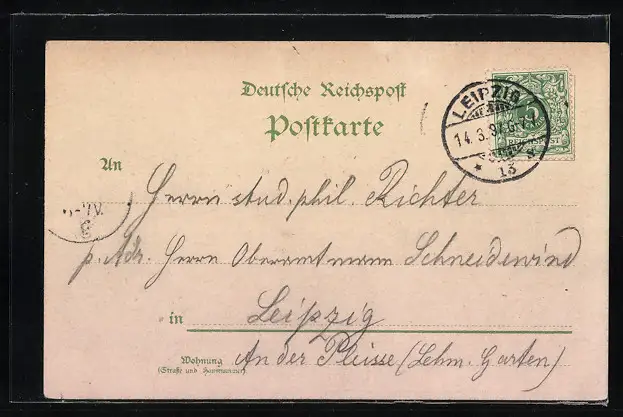 Deutsche Reichspost
Postkarte
LEIPZIG
14. 3. 97. 6-
* 13
REICHSPOST
An Herrn stud. phil. Richter
-7V.
p. Adr. Herrn Oberamtmann Schneidewind
in Leipzig
Wohnung An der Pleisse (Lehm. Garten)
(Straße und Hausnummer)